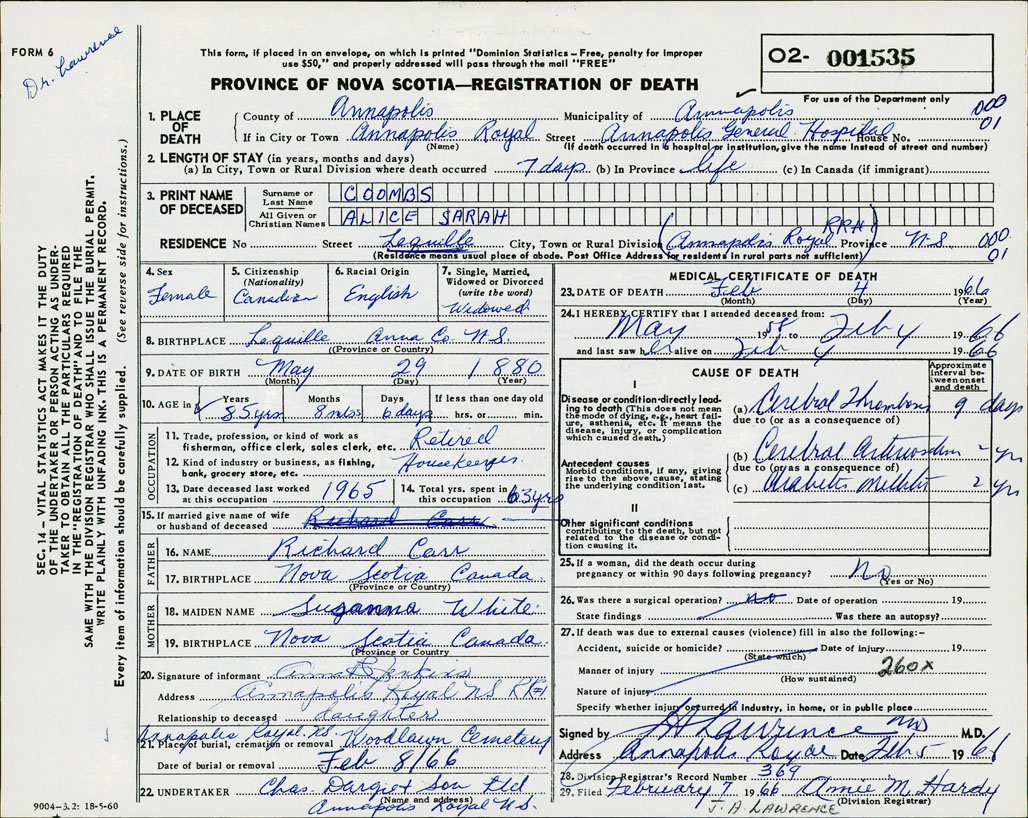 FORM 6
Dr. Lawrence
This form, if placed in an envelope, on which is printed "Dominion Statistics – Free, penalty for improper
use $50," and properly addressed will pass through the mail "FREE"
PROVINCE OF NOVA SCOTIA—REGISTRATION OF DEATH
O2- 001535
For use of the Department only
SEC. 14 – VITAL STATISTICS ACT MAKES IT THE DUTY
OF THE UNDERTAKER OR PERSON ACTING AS UNDER-
TAKER TO OBTAIN ALL THE PARTICULARS REQUIRED
IN THE "REGISTRATION OF DEATH" AND TO FILE THE
SAME WITH THE DIVISION REGISTRAR WHO SHALL ISSUE THE BURIAL PERMIT.
WRITE PLAINLY WITH UNFADING INK. THIS IS A PERMANENT RECORD.
Every item of information should be carefully supplied. (See reverse side for instructions.)
1. PLACE OF DEATH
County of Annapolis Municipality of Annapolis 000
If in City or Town Annapolis Royal Street Annapolis General Hospital House No. 01
(Name) (If death occurred in a hospital or institution, give the name instead of street and number)
2. LENGTH OF STAY (in years, months and days)
(a) In City, Town or Rural Division where death occurred 7 days (b) In Province life (c) In Canada (if immigrant)
3. PRINT NAME OF DECEASED
Surname or Last Name COOMBS
All Given or Christian Names ALICE SARAH
RESIDENCE No Street Lequille City, Town or Rural Division (Annapolis Royal RR#1) Province N.S. 000
01
(Residence means usual place of abode. Post Office Address for residents in rural parts not sufficient)
4. Sex Female
5. Citizenship (Nationality) Canadian
6. Racial Origin English
7. Single, Married, Widowed or Divorced (write the word) Widowed
8. BIRTHPLACE Lequille Anna Co. N.S.
(Province or Country)
9. DATE OF BIRTH May 29 1880
(Month) (Day) (Year)
10. AGE in Years Months Days If less than one day old
85 yrs 8 mos 6 days hrs. or min.
OCCUPATION
11. Trade, profession, or kind of work as fisherman, office clerk, sales clerk, etc. Retired
12. Kind of industry or business, as fishing, bank, grocery store, etc. Housekeeper
13. Date deceased last worked at this occupation 1965
14. Total yrs. spent in this occupation 63 yrs
15. If married give name of wife or husband of deceased Richard Carr
FATHER
16. NAME Richard Carr
17. BIRTHPLACE Nova Scotia Canada
(Province or Country)
MOTHER
18. MAIDEN NAME Suzanna White
19. BIRTHPLACE Nova Scotia Canada
(Province or Country)
20. Signature of informant Anna Jenkins
Address Annapolis Royal N.S. RR#1
Relationship to deceased daughter
Annapolis Royal N.S.
21. Place of burial, cremation or removal Woodlawn Cemetery
Date of burial or removal Feb 8/66
22. UNDERTAKER Chas. Dargie & Son Ltd
(Name and address)
Annapolis Royal N.S.
9004–3.2: 18-5-60
MEDICAL CERTIFICATE OF DEATH
23. DATE OF DEATH Feb 4 1966
(Month) (Day) (Year)
24. I HEREBY CERTIFY that I attended deceased from:
May 1958 to Feb 4 1966
and last saw her alive on Feb 4 1966
CAUSE OF DEATH
Approximate interval between onset and death
I
Disease or condition directly leading to death (This does not mean the mode of dying, e.g., heart failure, asthenia, etc. It means the disease, injury, or complication which caused death.)
(a) Cerebral Thrombosis 9 days
due to (or as a consequence of)
Antecedent causes
Morbid conditions, if any, giving rise to the above cause, stating the underlying condition last.
(b) Cerebral Arteriosclerosis 2 yrs
due to (or as a consequence of)
(c) Diabetes Mellitus 2 yrs
II
Other significant conditions
contributing to the death, but not related to the disease or condition causing it.
25. If a woman, did the death occur during pregnancy or within 90 days following pregnancy? No
(Yes or No)
26. Was there a surgical operation? No Date of operation 19
State findings Was there an autopsy?
27. If death was due to external causes (violence) fill in also the following:–
Accident, suicide or homicide? Date of injury 19
(State which)
Manner of injury 260x
(How sustained)
Nature of injury
Specify whether injury occurred in industry, in home, or in public place
Signed by Lawrence MD M.D.
Address Annapolis Royal Date Feb 5 1966
28. Division Registrar's Record Number 369
29. Filed February 7 1966 Annie M. Hardy
(Division Registrar)
J. A. LAWRENCE